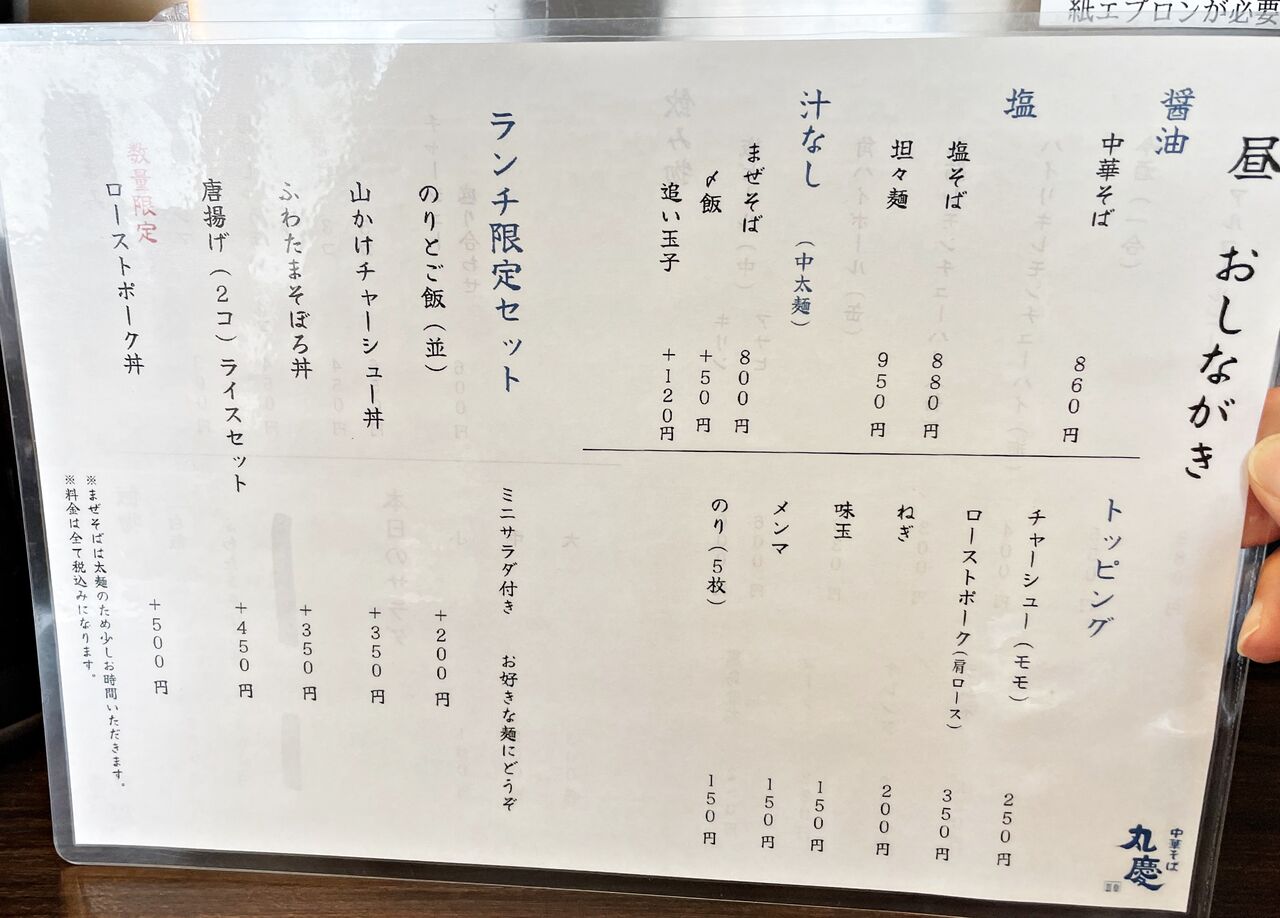 紙エプロンが必要
昼 おしながき
醤油
中華そば 860円
塩
塩そば 880円
坦々麺 950円
汁なし（中太麺）
まぜそば 800円
〆飯 +50円
追い玉子 +120円
トッピング
チャーシュー（モモ） 250円
ローストポーク（肩ロース） 350円
ねぎ 200円
味玉 150円
メンマ 150円
のり（5枚） 150円
ランチ限定セット
ミニサラダ付き お好きな麺にどうぞ
のりとご飯（並） +200円
山かけチャーシュー丼 +350円
ふわたまそぼろ丼 +350円
唐揚げ（2コ）ライスセット +450円
数量限定
ローストポーク丼 +500円
※まぜそばは太麺のため少しお時間いただきます。
※料金は全て税込みになります。
中華そば
丸慶